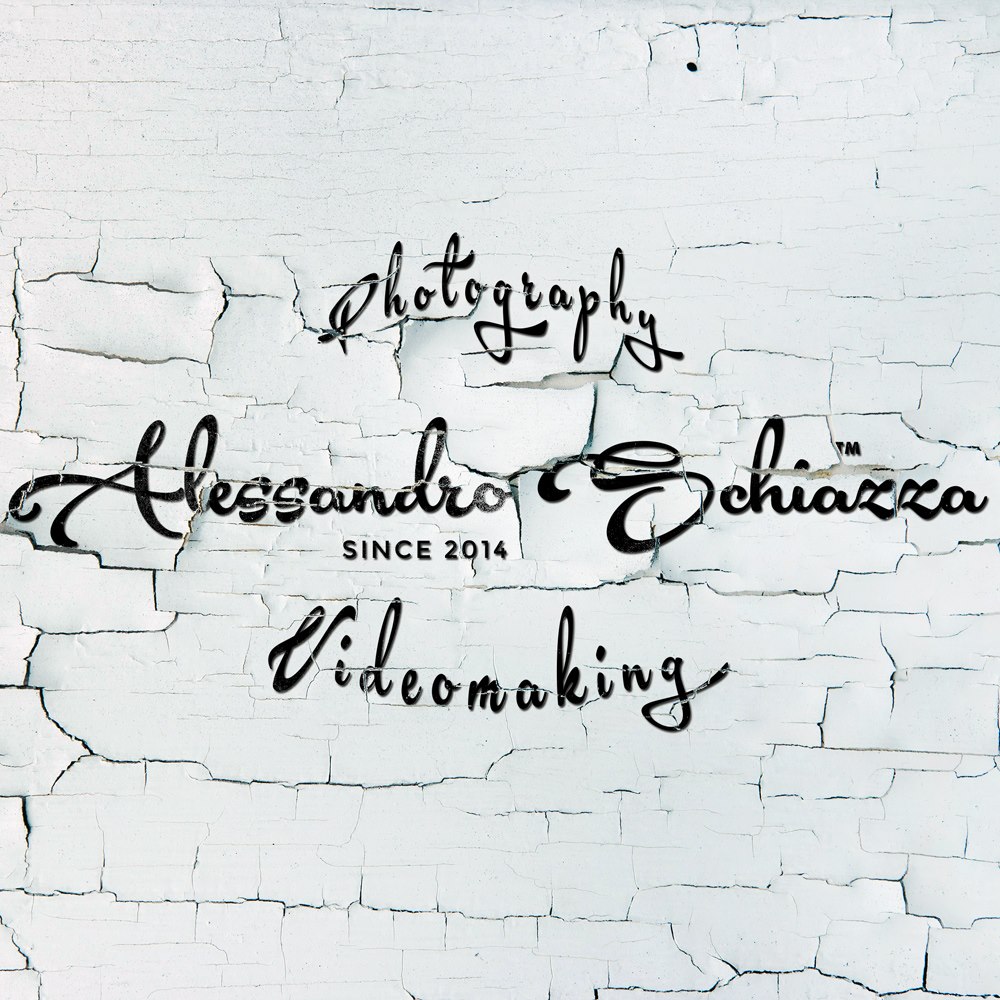 Photography
Alessandro Schiazza™
SINCE 2014
Videomaking